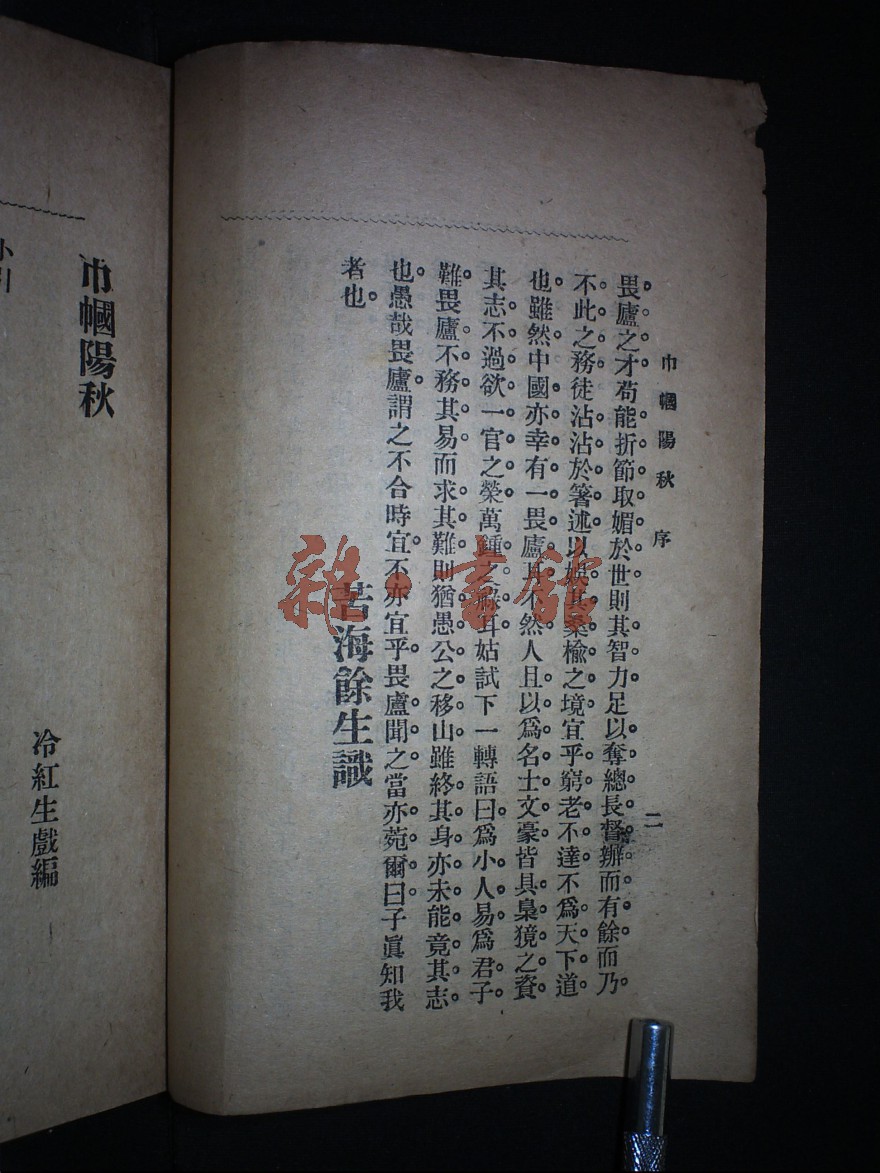 巾幗陽秋 序 二
畏廬之才苟能折節取媚於世則其智力足以奪總長督辦而有餘而乃
不此之務徒沾沾於箸述以娛其桑榆之境宜乎窮老不達不爲天下道
也雖然中國亦幸有一畏廬其不然人且以爲名士文豪皆具梟獍之資
其志不過欲一官之榮萬鍾之祿耳姑試下一轉語曰爲小人易爲君子
難畏廬不務其易而求其難則猶愚公之移山雖終其身亦未能竟其志
也愚哉畏廬謂之不合時宜不亦宜乎畏廬聞之當亦菀爾曰子眞知我
者也。
苦海餘生識
巾幗陽秋
冷紅生戲編
小引
雜·書館